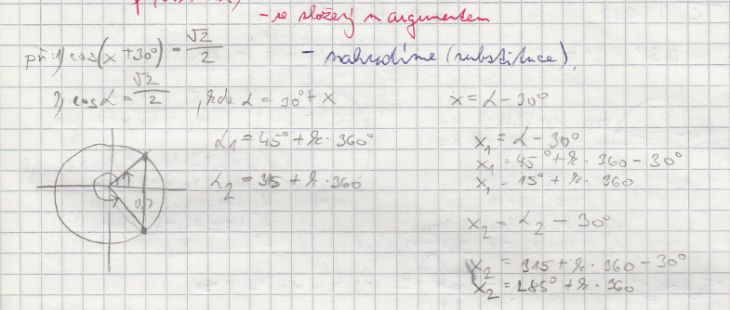 - se složený m argumentem
př: 1) cos(x + 30°) = √2/2
- nahradíme (substituce),
2) cos α = √2/2 , kde α = 30° + x
x = α - 30°
α1 = 45° + k · 360°
α2 = 315 + k · 360
0,7
x1 = α - 30°
x1 = 45° + k · 360 - 30°
x1 = 15° + k · 360
x2 = α2 - 30°
x2 = 315 + k · 360 - 30°
x2 = 285° + k · 360